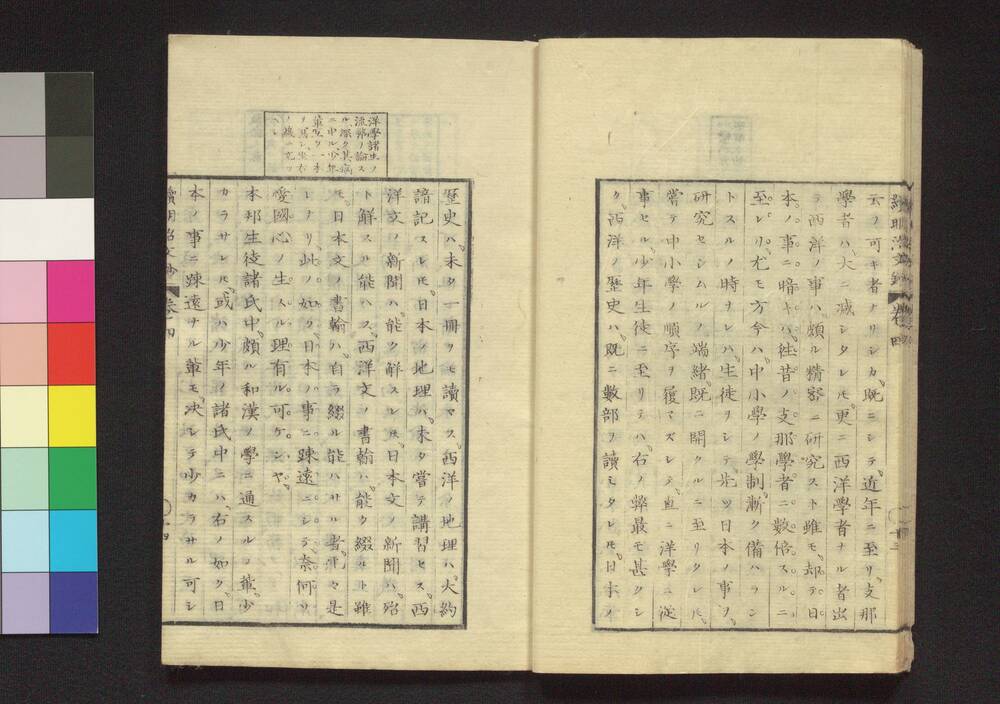 云フ可キ者ナリシカ既ニシテ近年ニ至リ支那
學者ハ大ニ減シタレ𪜈更ニ西洋學者ナル者出
テ西洋ノ事ハ頗ル精密ニ研究スト雖モ却テ日
本ノ事ニ暗キハ徃昔ノ支那學者ニ數倍スルニ
至レリ尤モ方今ハ中小學ノ學制漸ク備ハラン
トスルノ時ナレハ生徒ヲシテ先ツ日本ノ事ヲ
研究セシムルノ端緒既ニ開クルニ至リタレ𪜈
嘗テ中小學ノ順序ヲ履マズシテ直ニ洋學ニ從
事セル少年生徒ニ至リテハ右ノ弊最モ甚クシ
ク西洋ノ歷史ハ既ニ數部ヲ讀ミタレ𪜈日本ノ
續明治文鈔 卷四
洋學諸生ノ
流弊ヲ論ス
ル深ク其病
ニ中ル少年
輩宜ク一本
ヲ寫シ坐右
ノ箴ニ充ツ
ヘシ
歷史ハ未タ一冊ヲモ讀マス西洋ノ地理ハ大約
諳記スレ𪜈日本ノ地理ハ未タ嘗テ講習セス西
洋文ノ新聞ハ能ク解スレ𪜈日本文ノ新聞ハ殆
ト解スル能ハス西洋文ノ書翰ハ能ク綴ルト雖
モ日本文ノ書翰ハ自ラ綴ル能ハサル者徃々是
レナリ此ノ如ク日本ノ事ニ踈遠ニシテ奈何ソ
愛國心ノ生スル理有ル可ケンヤ
本邦生徒諸氏中頗ル和漢ノ學ニ通スルノ輩少
カラサレ𪜈或ハ少年ノ諸氏中ニハ右ノ如ク日
本ノ事ニ踈遠ナル輩モ决シテ少カラサル可シ
續明治文鈔 卷四